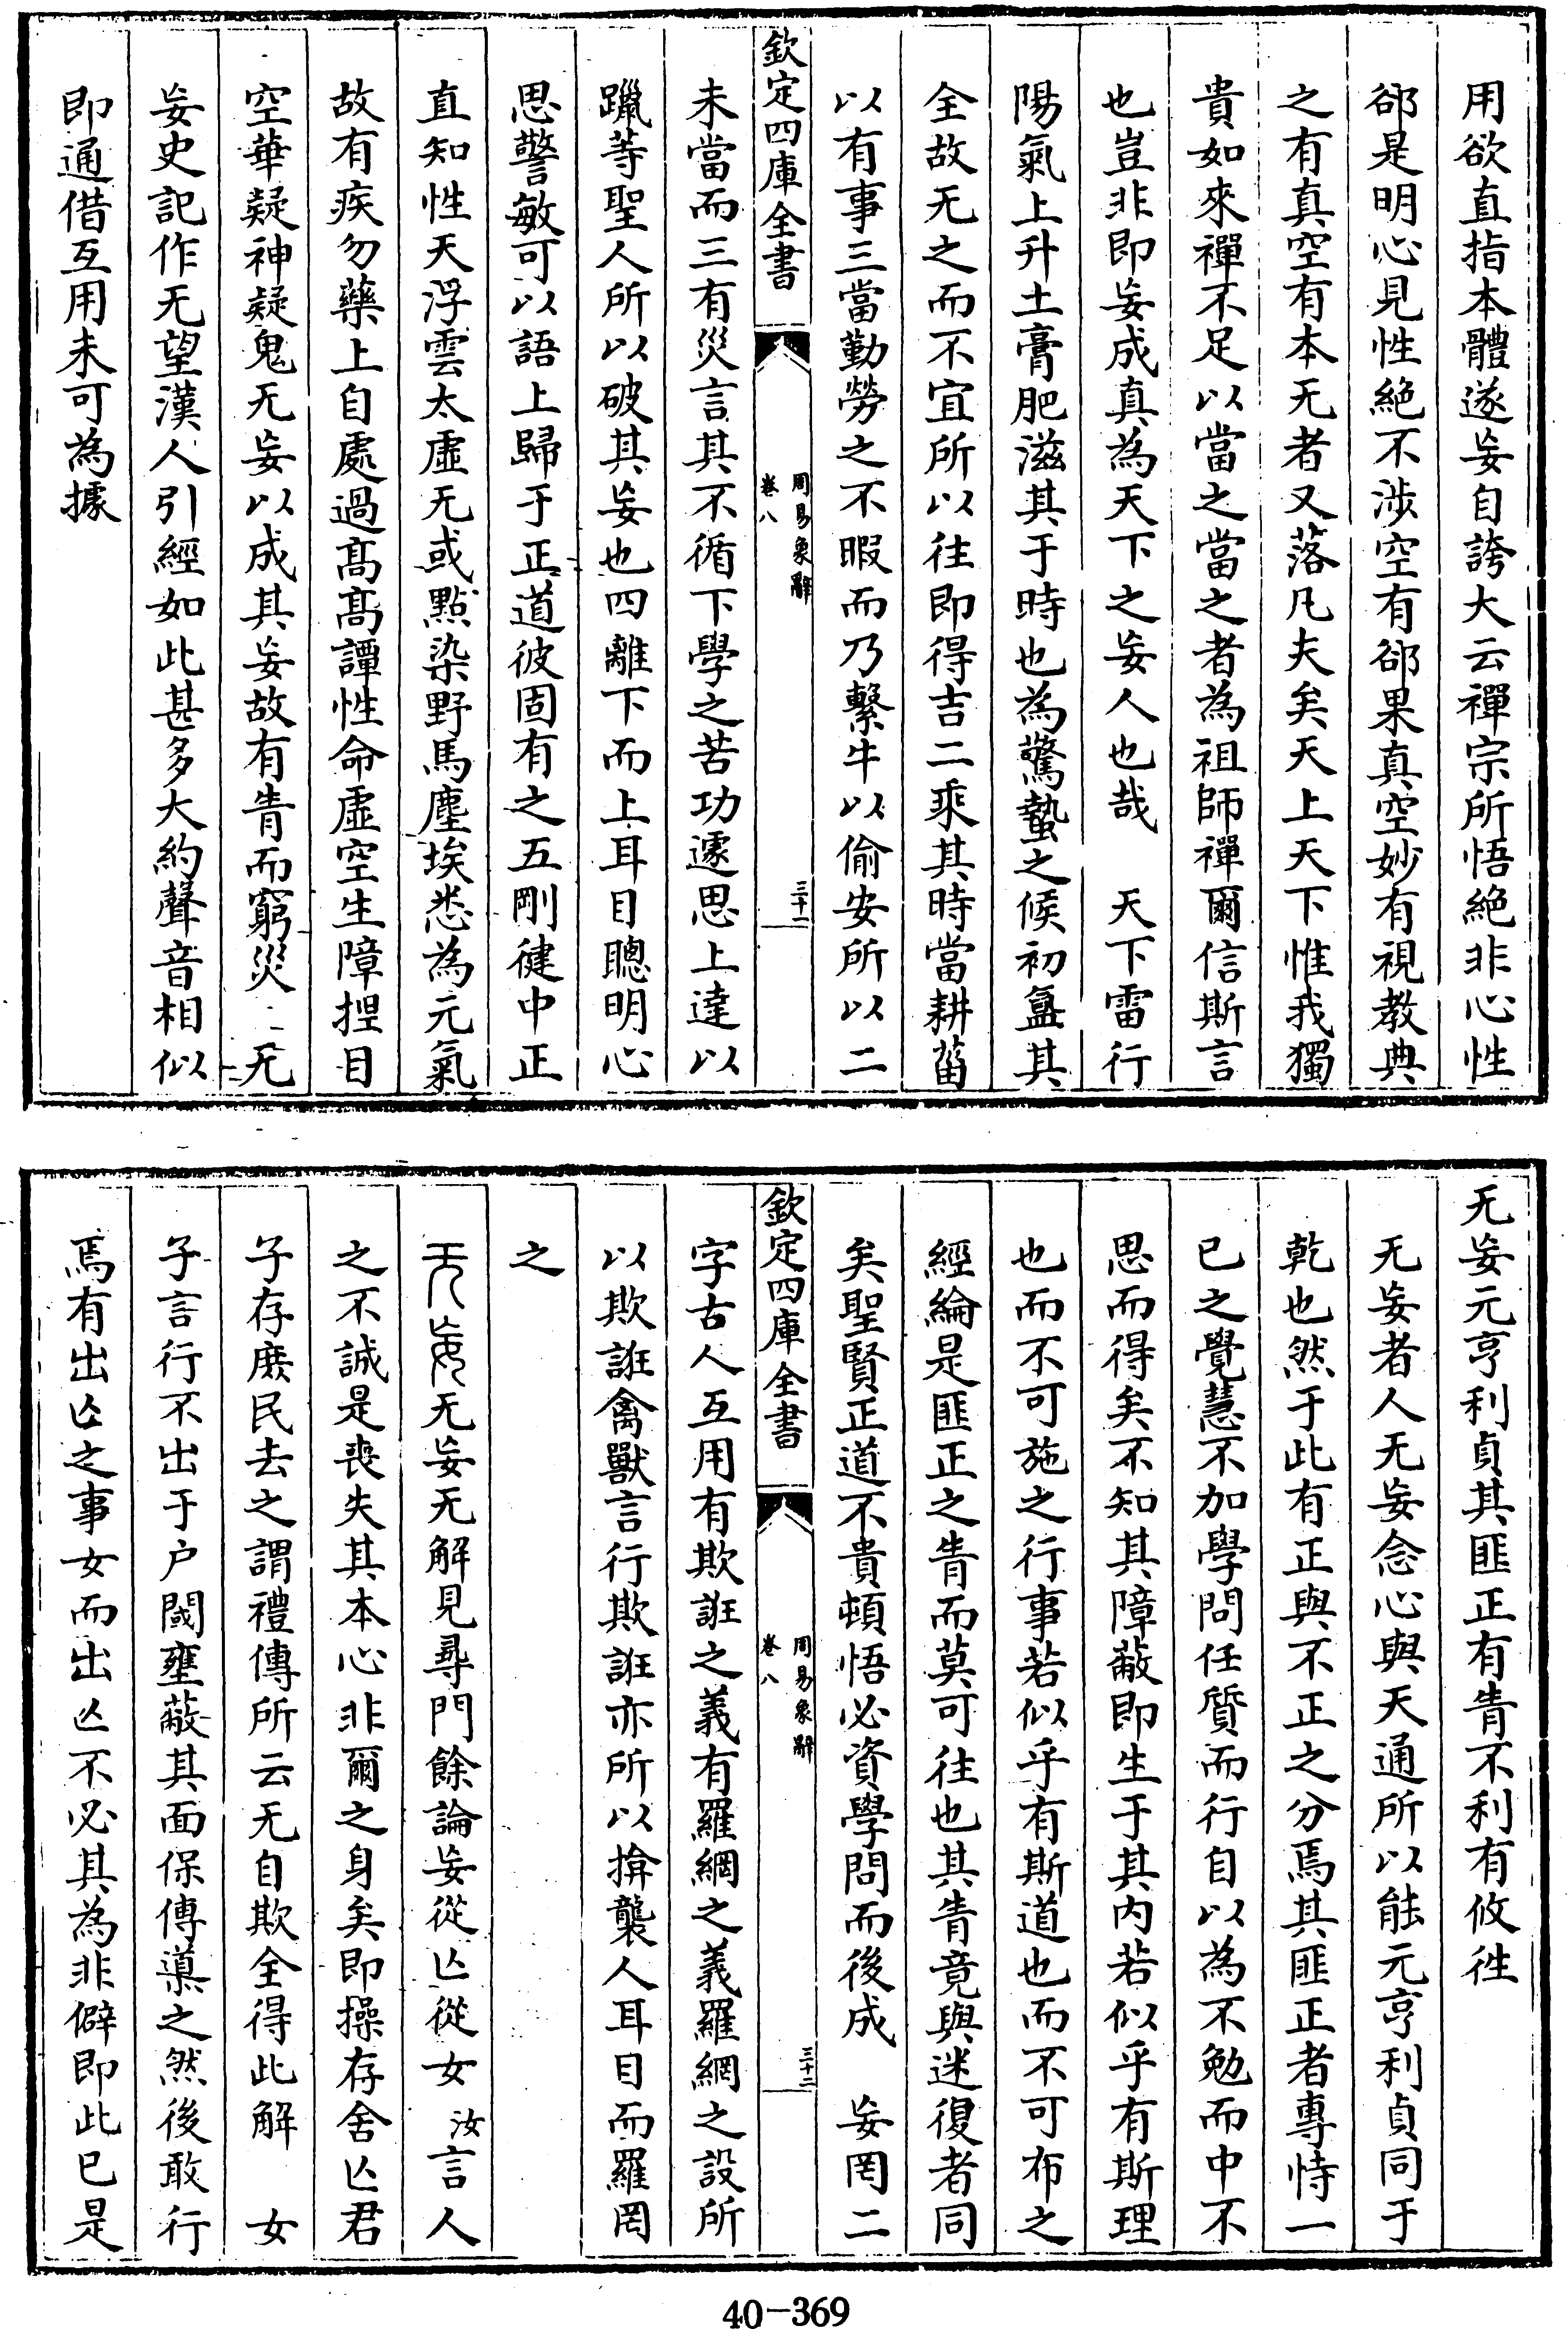 用欲直指本體遂妄自誇大云禪宗所悟絶非心性
郤是明心見性絶不涉空有郤果真空妙有視教典
之有真空有本无者又落凡夫矣天上天下惟我獨
貴如來禪不足以當之當之者為祖師禪爾信斯言
也豈非即妄成真為天下之妄人也哉　天下雷行
陽氣上升土膏肥滋其于時也為驚蟄之候初㿽其
全故无之而不宜所以往即得吉二乘其時當耕菑
以有事三當勤勞之不暇而乃繫牛以偷安所以二
欽定四庫全書
周易象辭
卷八
三十一
未當而三有災言其不循下學之苦功遽思上達以
躐等聖人所以破其妄也四離下而上耳目聰明心
思警敏可以語上歸于正道彼固有之五剛健中正
直知性天浮雲太虛无或點染野馬塵埃悉為元氣
故有疾勿藥上自處過髙髙譚性命虛空生障揑目
空華疑神疑鬼无妄以成其妄故有眚而窮災　无
妄史記作无望漢人引經如此甚多大約聲音相似
即通借互用未可為據
无妄元亨利貞其匪正有眚不利有攸徃
无妄者人无妄念心與天通所以能元亨利貞同于
乾也然于此有正與不正之分焉其匪正者專恃一
已之覺慧不加學問任質而行自以為不勉而中不
思而得矣不知其障蔽即生于其内若似乎有斯理
也而不可施之行事若似乎有斯道也而不可布之
經綸是匪正之眚而莫可往也其眚竟與迷復者同
矣聖賢正道不貴頓悟必資學問而後成　妄罔二
欽定四庫全書
周易象辭
卷八
三十二
字古人互用有欺誑之義有羅網之義羅網之設所
以欺誑禽獸言行欺誑亦所以揜襲人耳目而羅罔
之
无妄无妄无解見㝷門餘論妄從亾從女汝言人
之不誠是喪失其本心非爾之身矣即操存舍亾君
子存庶民去之謂禮傳所云无自欺全得此解　女
子言行不出于户閾壅蔽其面保傅導之然後敢行
焉有出亾之事女而出亾不必其為非僻即此已是
40-369